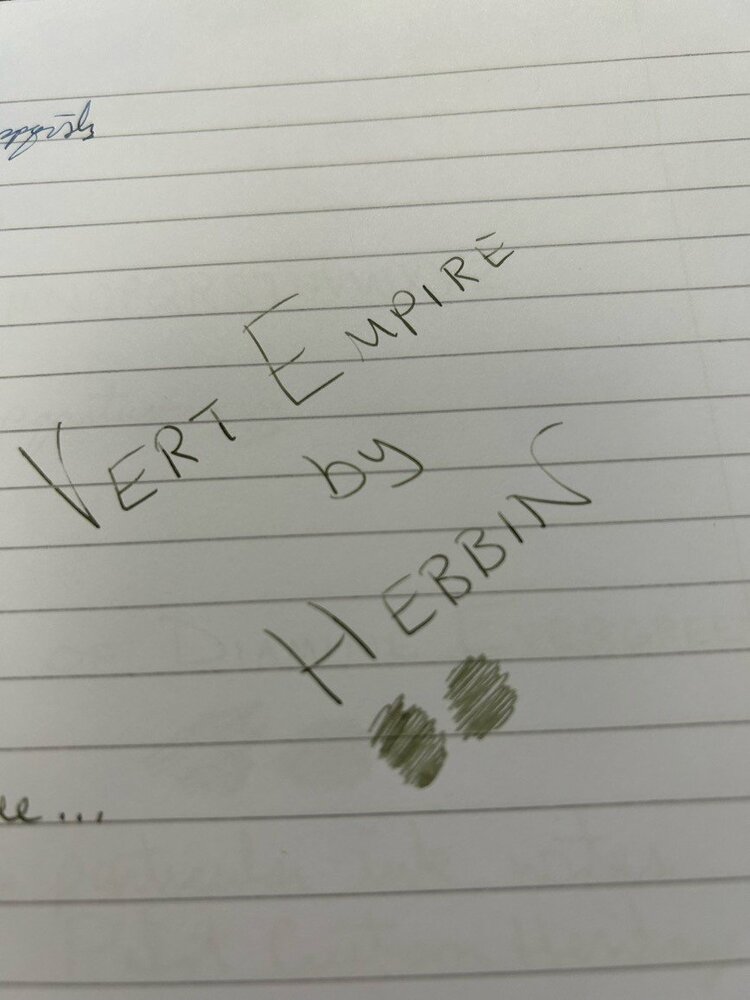 VERT EMPIRE
by
HEBBIN